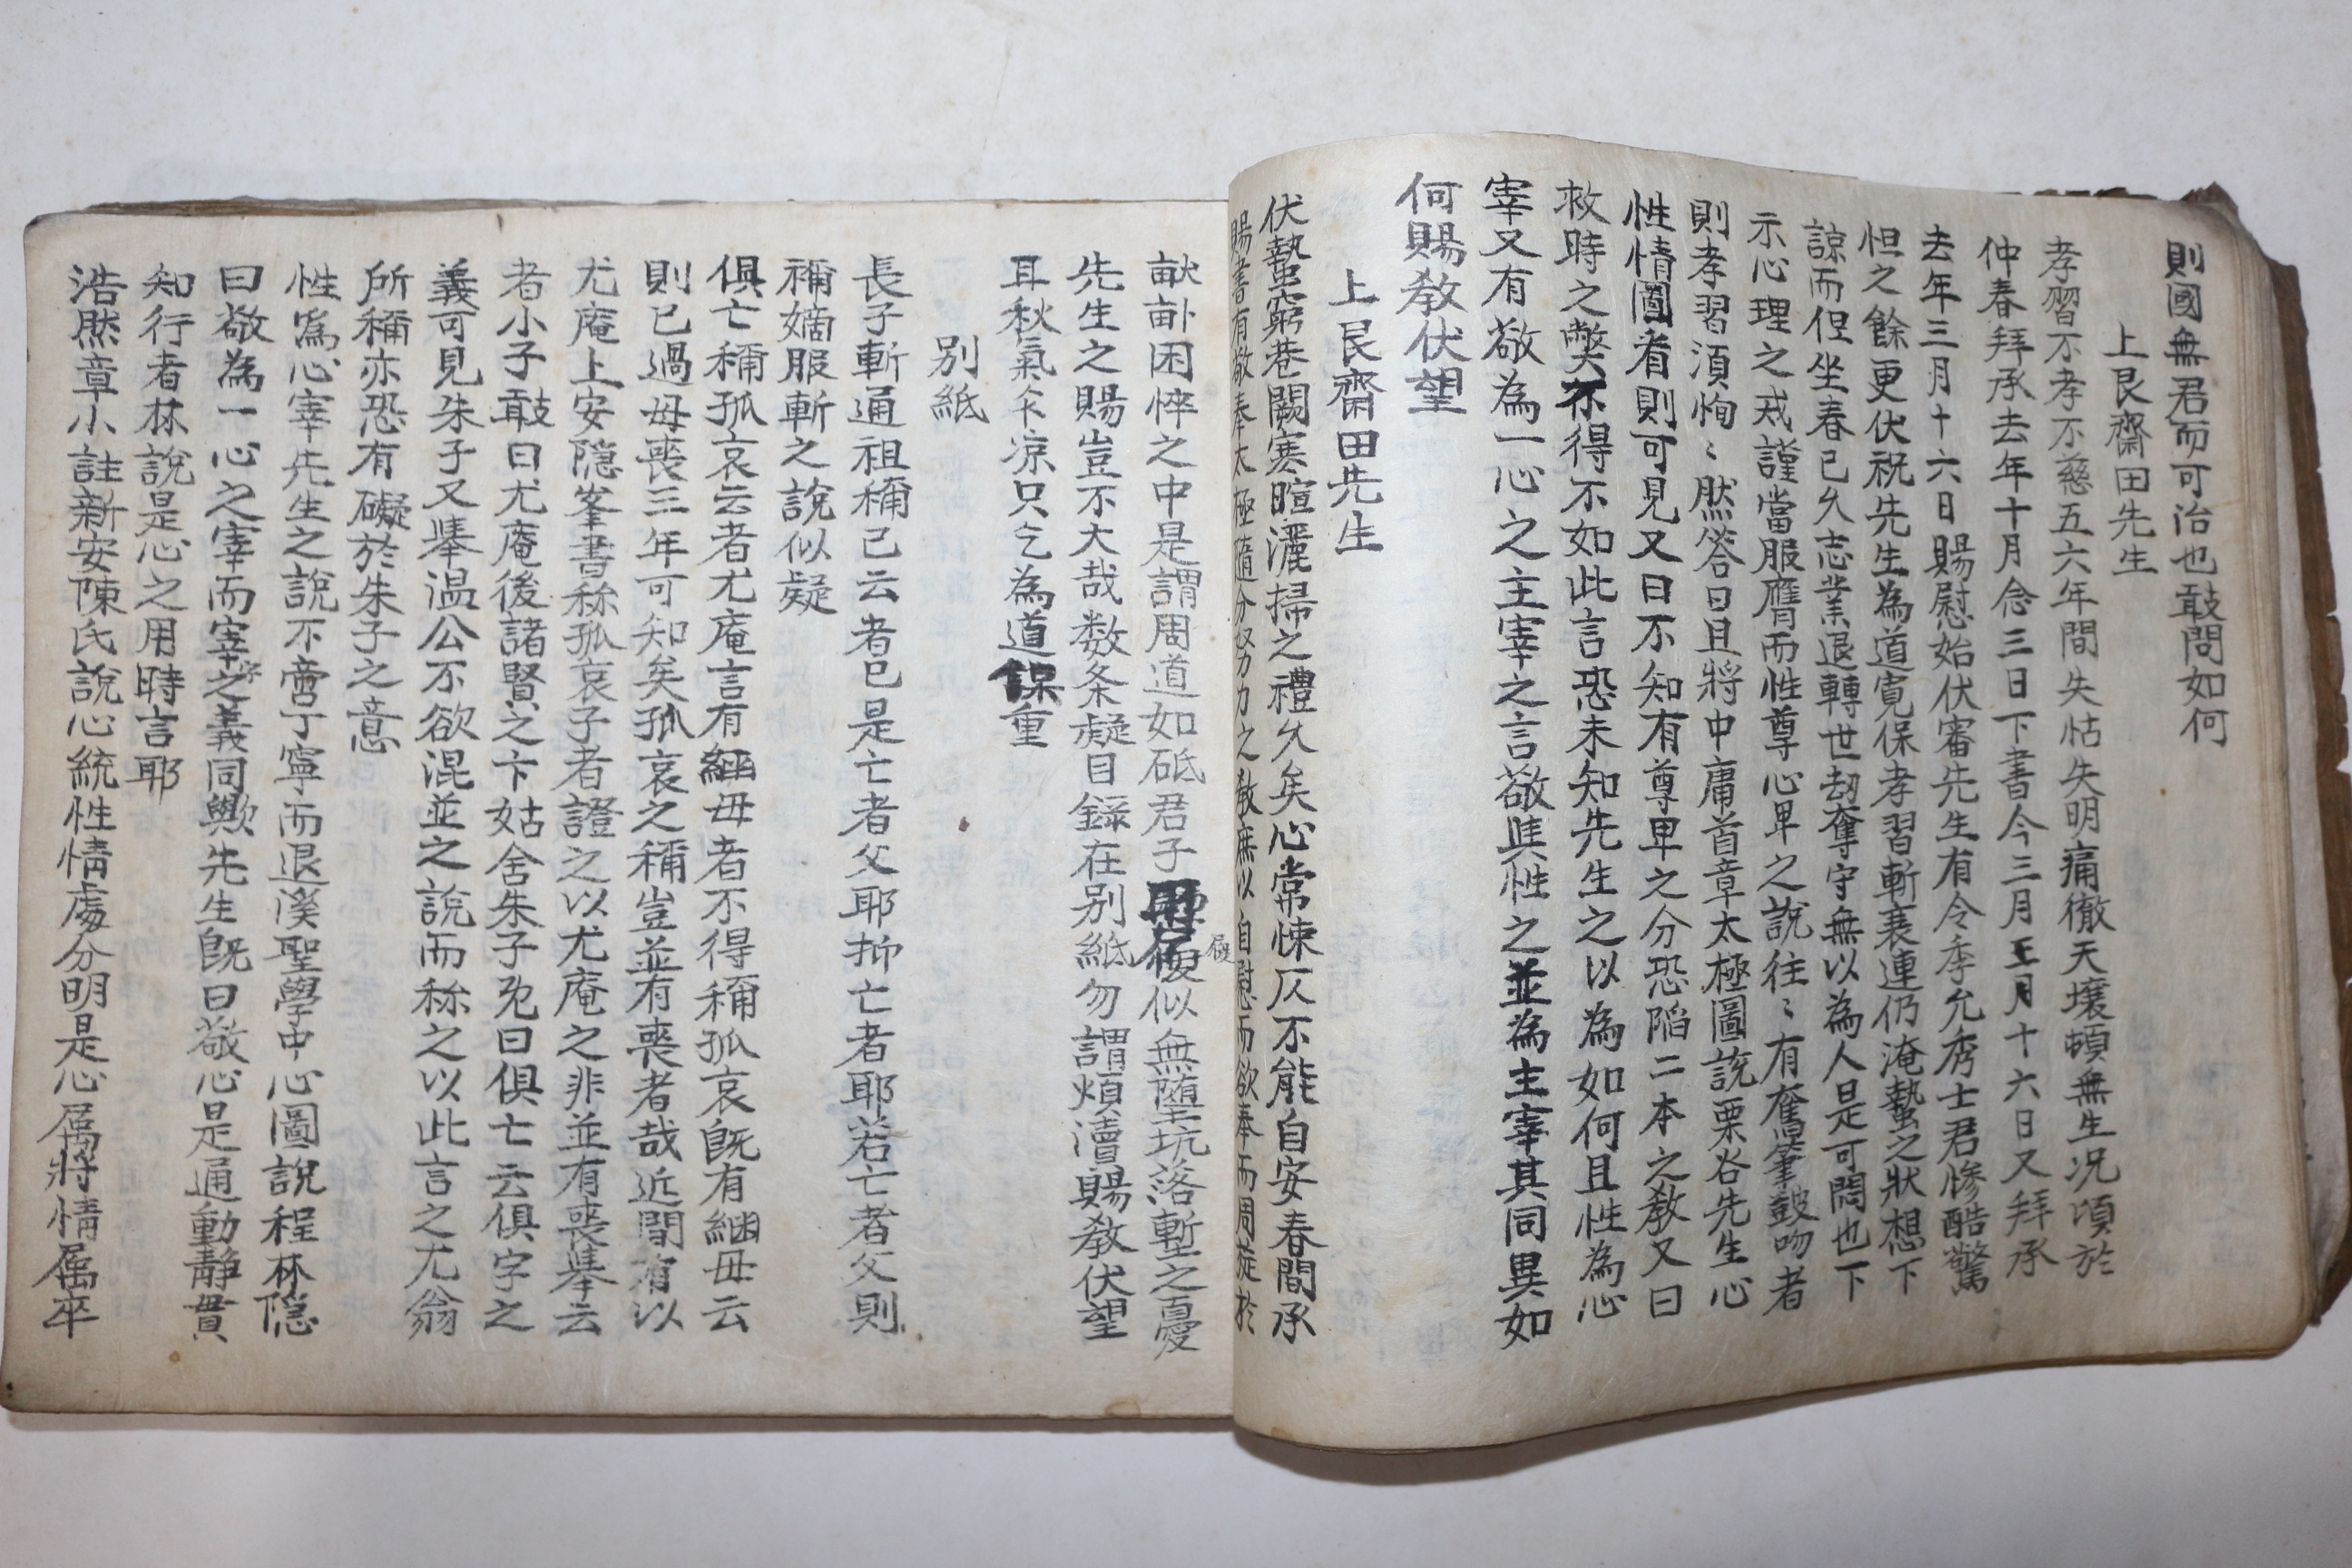 則國無君而可治也敢問如何
上艮齋田先生
孝習不孝不慈五六年間失怙失明痛徹天壤頓無生况頃於
仲春拜承去年十月念三日下書今三月十六日又拜承
去年三月十六日賜慰始伏審先生有令季允秀士君慘酷驚
怛之餘更伏祝先生為道寬保孝習斬衰連仍淹蟄之狀想下
諒而但坐春已久志業退轉世刼奪守無以為人是可悶也下
示心理之戒謹當服膺而性尊心卑之說往〻有奮筆鼓吻者
則孝習須恂〻然答曰且將中庸首章太極圖說栗谷先生心
性情圖看則可見又曰不知有尊卑之分恐陷二本之教又曰
救時之弊不得不如此言恐未知先生之以為如何且性為心
宰又有敬為一心之主宰之言敬與性之並為主宰其同異如
何賜教伏望
上艮齋田先生
伏蟄窮巷闕寒暄灑掃之禮久矣心常悚仄不能自安春間承
賜書有敬奉太極隨分努力之教庶以自慰而欲奉而周旋於
畎畒困悴之中是謂周道如砥君子履似無墮坑落塹之憂
履
先生之賜豈不大哉数条疑目錄在别紙勿謂煩瀆賜教伏望
耳秋氣乍凉只乞為道保重
别紙
長子斬通祖禰已云者已是亡者父耶抑亡者耶若亡者父則
禰嫡服斬之說似疑
俱亡稱孤哀云者尤庵言有繼母者不得稱孤哀旣有繼母云
則已過母喪三年可知矣孤哀之稱豈並有喪者哉近間有以
尤庵上安隱峯書稱孤哀子者證之以尤庵之非並有喪擧云
者小子敢曰尤庵後諸賢之卞姑舍朱子旣曰俱亡云俱字之
義可見朱子又擧温公不欲混並之說而稱之以此言之尤翁
所稱亦恐有礙於朱子之意
性爲心宰先生之說不啻丁寧而退溪聖學中心圖說程林隱
曰敬為一心之宰而宰之義同歟先生旣曰敬心是通動靜貫
知行者林說是心之用時言耶
浩然章小註新安陳氏說心統性情處分明是心属將情属卒